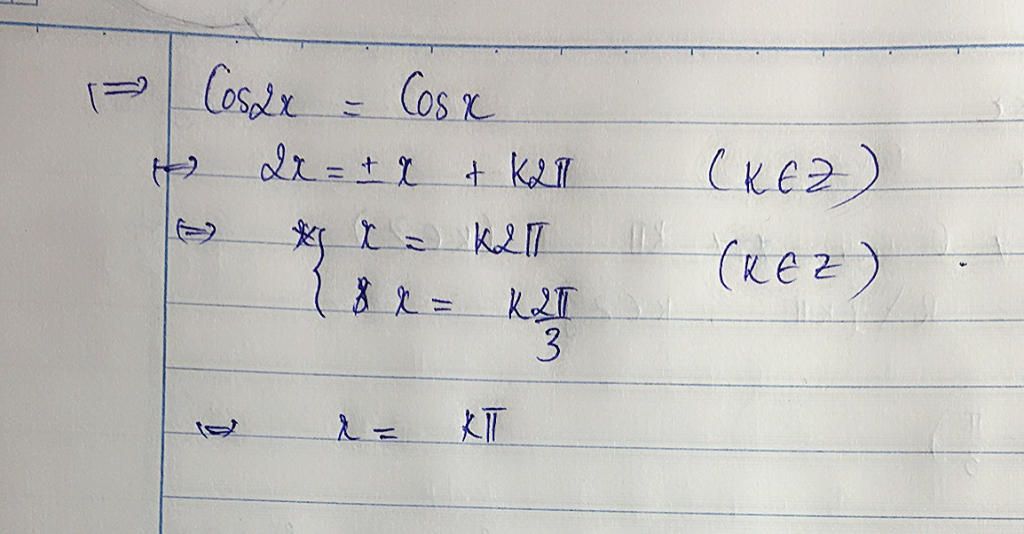 ⇔ Cos2x = Cosx
⇔ 2x = ± x + k2π (k∈Z)
⇔ { x = k2π
x = k2π/3 (k∈Z).
⇔ x = kπ